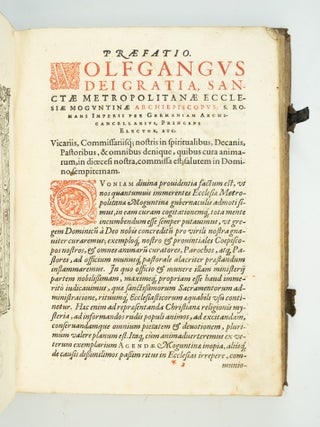 PRÆFATIO.
WOLFGANGVS
DEI GRATIA, SAN-
CTÆ METROPOLITANÆ ECCLE-
SIÆ MOGVNTINÆ ARCHIEPISCOPVS, S. RO-
MANI IMPERII PER GERMANIAM ARCHI-
CANCELLARIVS, PRINCEPS
ELECTOR, ETC.
Vicariis, Commissariisq́; nostris in spiritualibus, Decanis,
Pastoribus, & omnibus denique, quibus cura anima-
rum, in diœcesi nostra, commissa est, salutem in Domi-
no sempiternam.
QVONIAM diuina prouidentia factum est, vt
nos quantumuis immerentes Ecclesiæ Metro-
politanæ Moguntinæ gubernaculis admoti si-
mus, in eam curam cogitationemq́;, tota mente
incumbendum esse semper putauimus, vt gre-
gem Dominicũ à Deo nobis concreditũ pro virili nostra gna-
uiter curaremus, exemploq́;, nostro & prouinciales Corpisco-
pos nostros, & omnes animarum Curatores, Parochos, atq́;, Pa-
stores, ad officium munusq́; pastorale alacriter præstandum
inflammaremus. In quo officio & munere illam monasterij
partem nobilissimam, maximeq́; propriam esse haud immé-
ritò iudicauimus, quæ sanctissimorum Sacramentorum ad-
ministratione, rituumq́; Ecclesiasticorum æquabili vsu conti-
netur. Hæc enim ad repræsentanda Christianæ religionis my-
steria, ad informandos rudis populi animos, ad excitandam,
conseruandamque omnium pietatem & deuotionem, pluri-
mùm valere planum est. Itaq́; cùm animaduerteremus ex ve-
terum exemplarium AGENDÆ Moguntinæ inopia, aliisq́;
de causis dissimilimos passim ritus in Ecclesias irrepere, com-
minio-